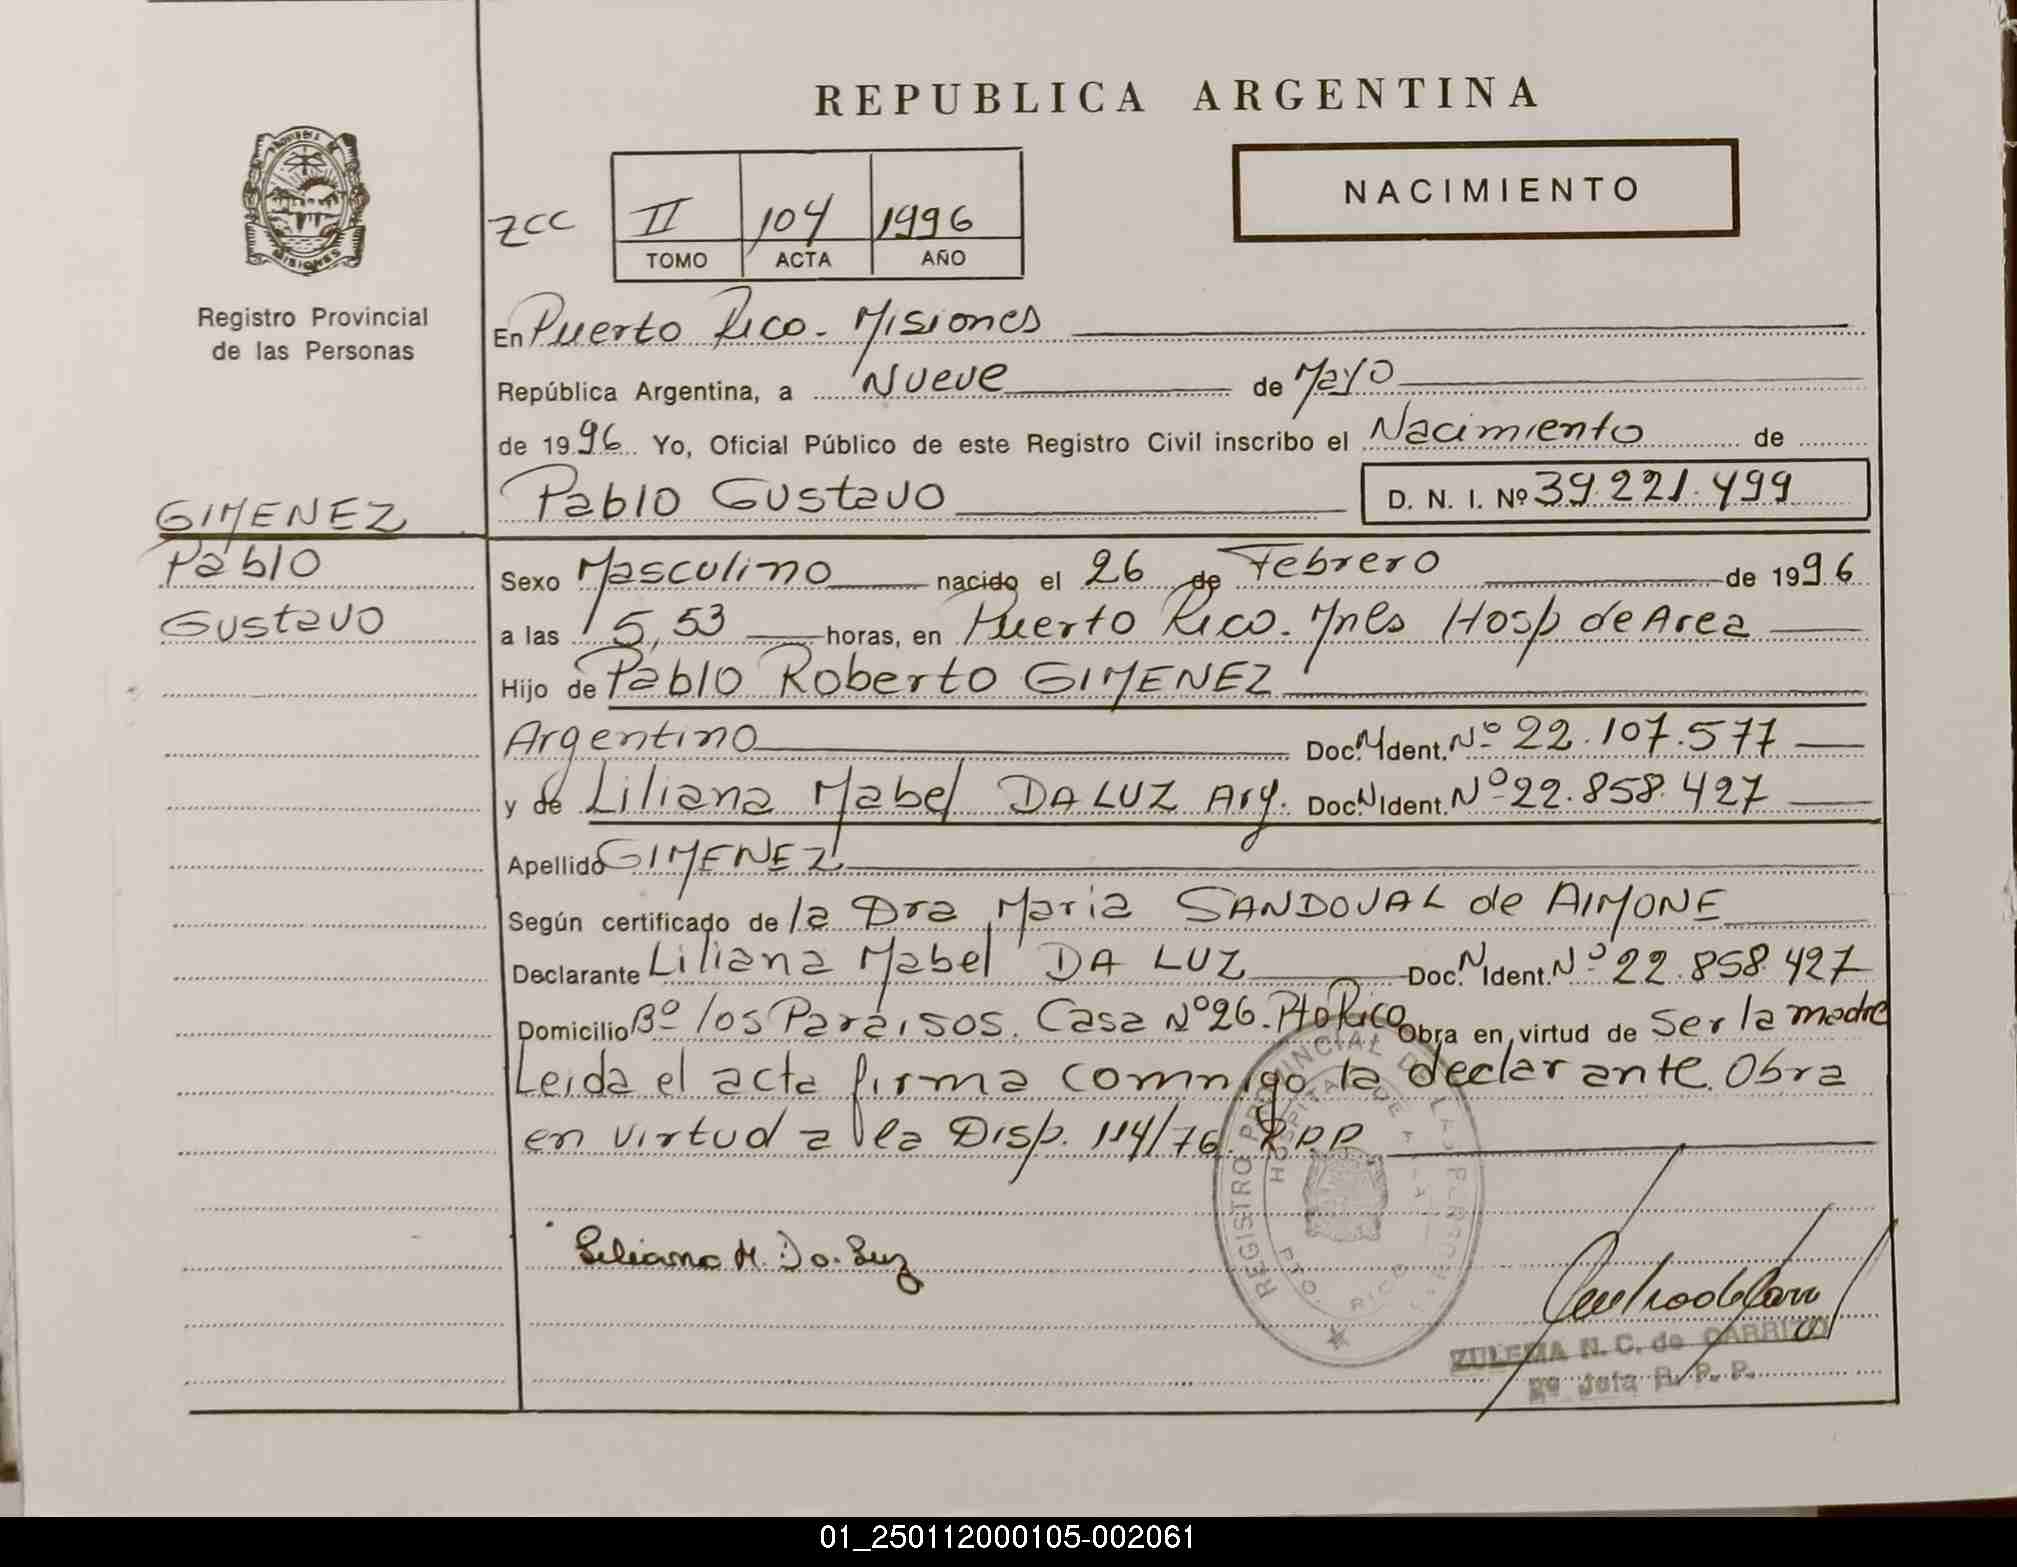 REPUBLICA ARGENTINA
NACIMIENTO
ZCC
II 104 1996
TOMO ACTA AÑO
MISIONES
Registro Provincial
de las Personas
En Puerto Rico - Misiones
República Argentina, a Nueve de Mayo
de 1996 Yo, Oficial Público de este Registro Civil inscribo el Nacimiento de
Pablo Gustavo D. N. I. Nº 39.221.499
GIMENEZ
Pablo
Gustavo
Sexo Masculino nacido el 26 de Febrero de 1996
a las 5,53 horas, en Puerto Rico. Mnes Hosp de Area
Hijo de Pablo Roberto GIMENEZ
Argentino Doc. N Ident. Nº 22.107.577
y de Liliana Mabel DA LUZ Arg. Doc. N Ident. Nº 22.858.427
Apellido GIMENEZ
Según certificado de la Dra Maria SANDOVAL de AIMONE
Declarante Liliana Mabel DA LUZ Doc. N Ident. Nº 22.858.427
Domicilio Bº los Paraisos. Casa Nº 26. Pto Rico Obra en virtud de ser la madre
Leida el acta firma comnigo la declarante. Obra
en virtud a la Disp. 114/76 R.P.P.
REGISTRO PROVINCIAL DE LAS PERSONAS
HOSPITAL DE AREA
PTO. RICO
Liliana M. Da Luz
ZULEMA N. C. de CARRIZO
2º Jefa R. P. P.
01_250112000105-002061